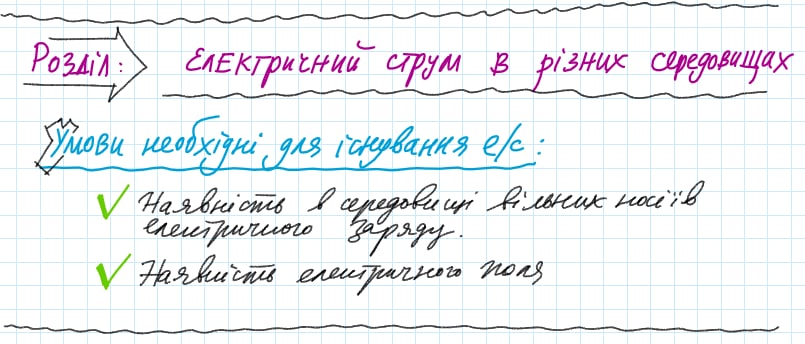 Розділ: Електричний струм в різних середовищах
Умови необхідні для існування е/с:
Наявність в середовищі вільних носіїв
електричного заряду.
Наявність електричного поля